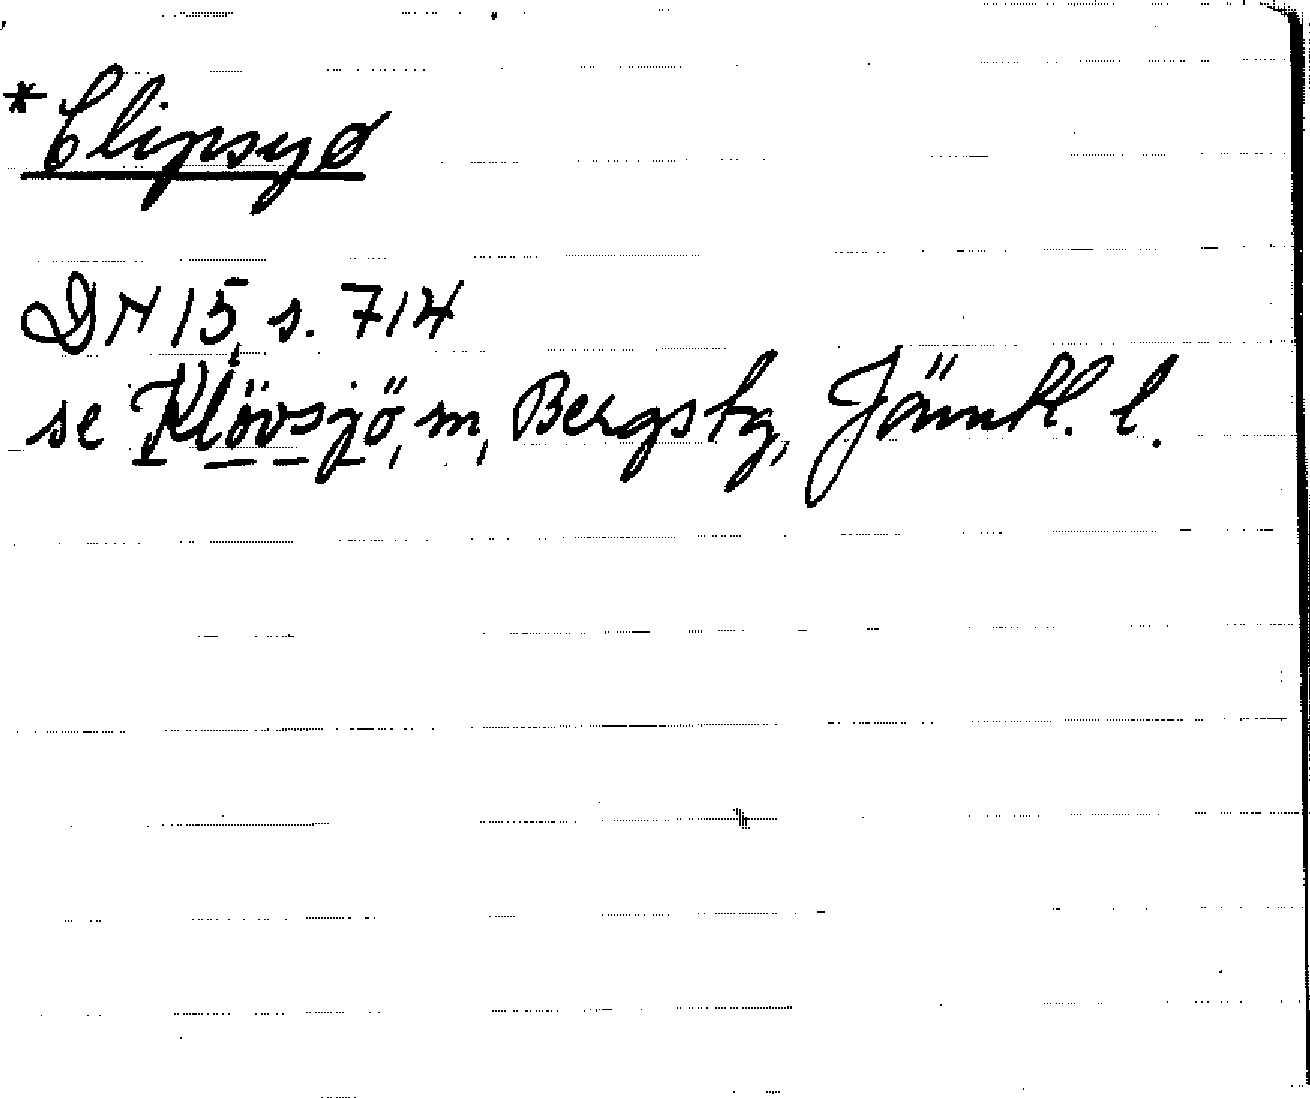 *Clipsyø
DN 15 s. 714
se Klövsjö, sn, Bergs tg, Jämtl. l.